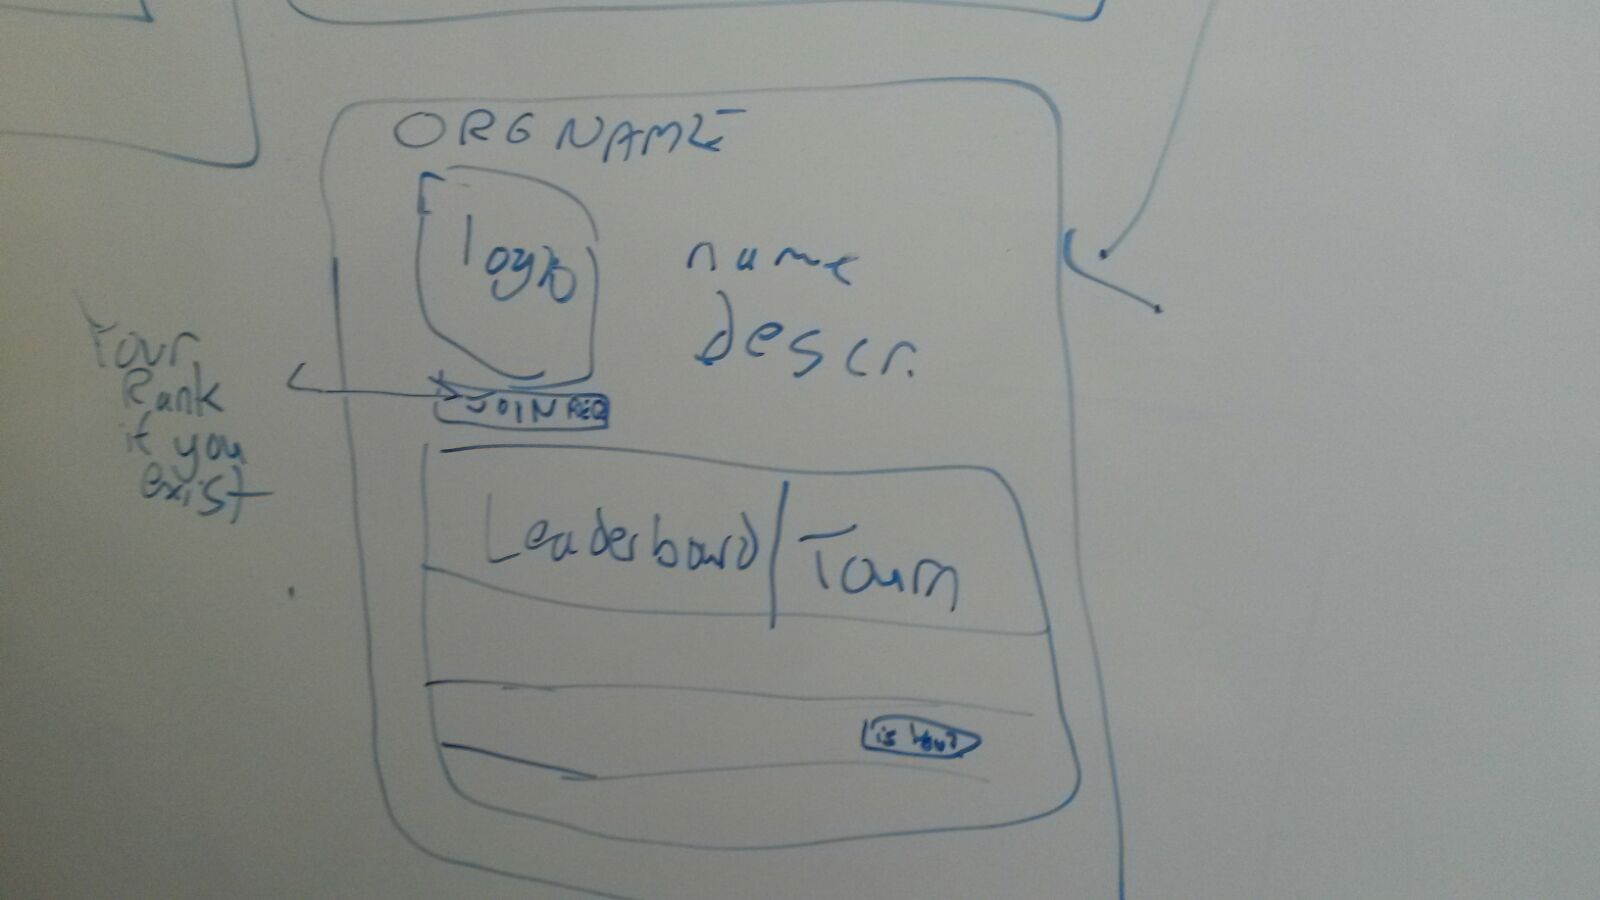 ORG NAME
logo
name
descr.
Your
Rank
if you
exist
JOIN REQ
Leaderboard
Tourn
is